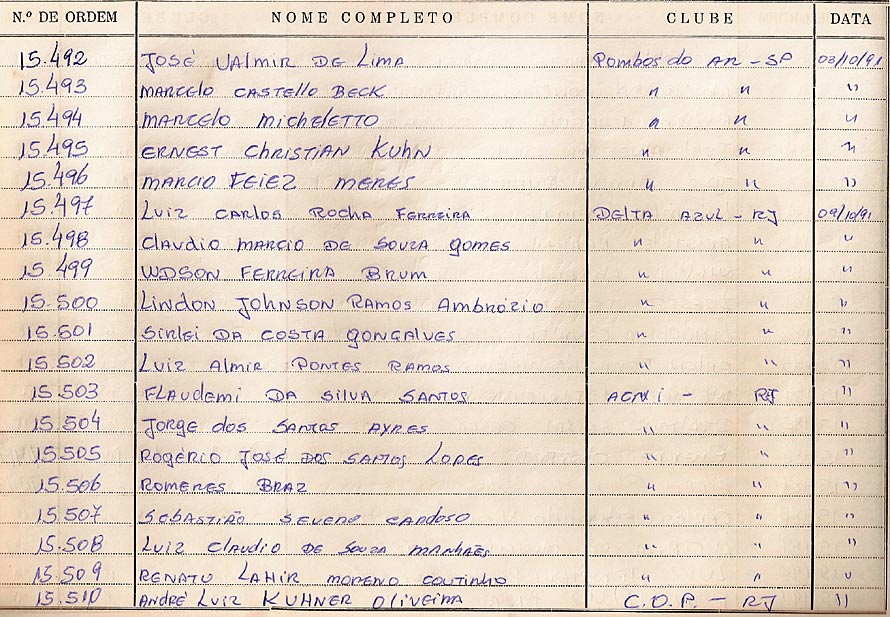 N.º DE ORDEM NOME COMPLETO CLUBE DATA
15.492 José Valmir de Lima Pombos do Ar - SP 03/10/91
15.493 Marcelo Castello Beck " " "
15.494 Marcelo Micheletto " " "
15.495 Ernest Christian Kuhn " " "
15.496 Marcio Feiez Meres " " "
15.497 Luiz Carlos Rocha Ferreira Delta Azul - RJ 09/10/91
15.498 Claudio Marcio de Souza Gomes " " "
15.499 Wdson Ferreira Brum " " "
15.500 Lindon Johnson Ramos Ambrózio " " "
15.501 Sirlei da Costa Gonçalves " " "
15.502 Luiz Almir Pontes Ramos " " "
15.503 Flaudemi da Silva Santos - RJ "
15.504 Jorge dos Santos Ayres " " "
15.505 Rogério José dos Santos Lopes " " "
15.506 Romeres Braz " " "
15.507 Sebastião Severo Cardoso " " "
15.508 Luiz Claudio de Souza Manhães " " "
15.509 Renato Lahir Moreno Coutinho " " "
15.510 André Luiz Kuhner Oliveira C.O.P. - RJ "